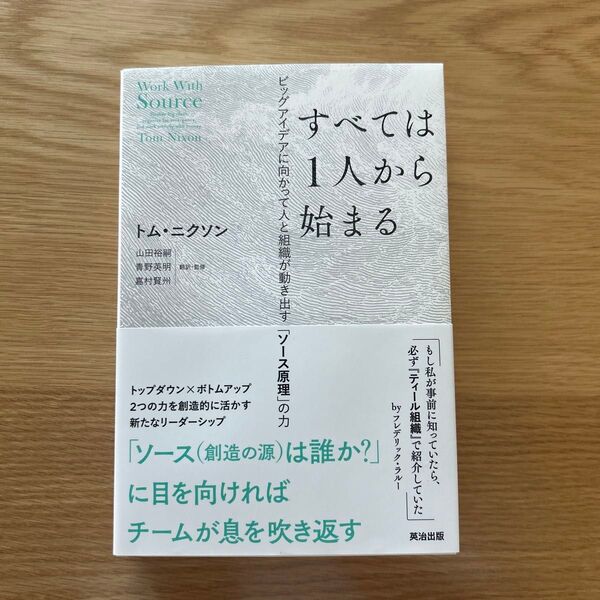 Work With
Source
Tom Nixon
すべては
1人から
始まる
ビッグアイデアに向かって人と組織が動き出す「ソース原理」の力
トム・ニクソン
山田裕嗣
青野英明
嘉村賢州
翻訳・監修
もし私が事前に知っていたら、
必ず『ティール組織』で紹介していた
by フレデリック・ラルー
トップダウン×ボトムアップ
2つの力を創造的に活かす
新たなリーダーシップ
「ソース(創造の源)は誰か?」
に目を向ければ
チームが息を吹き返す
英治出版